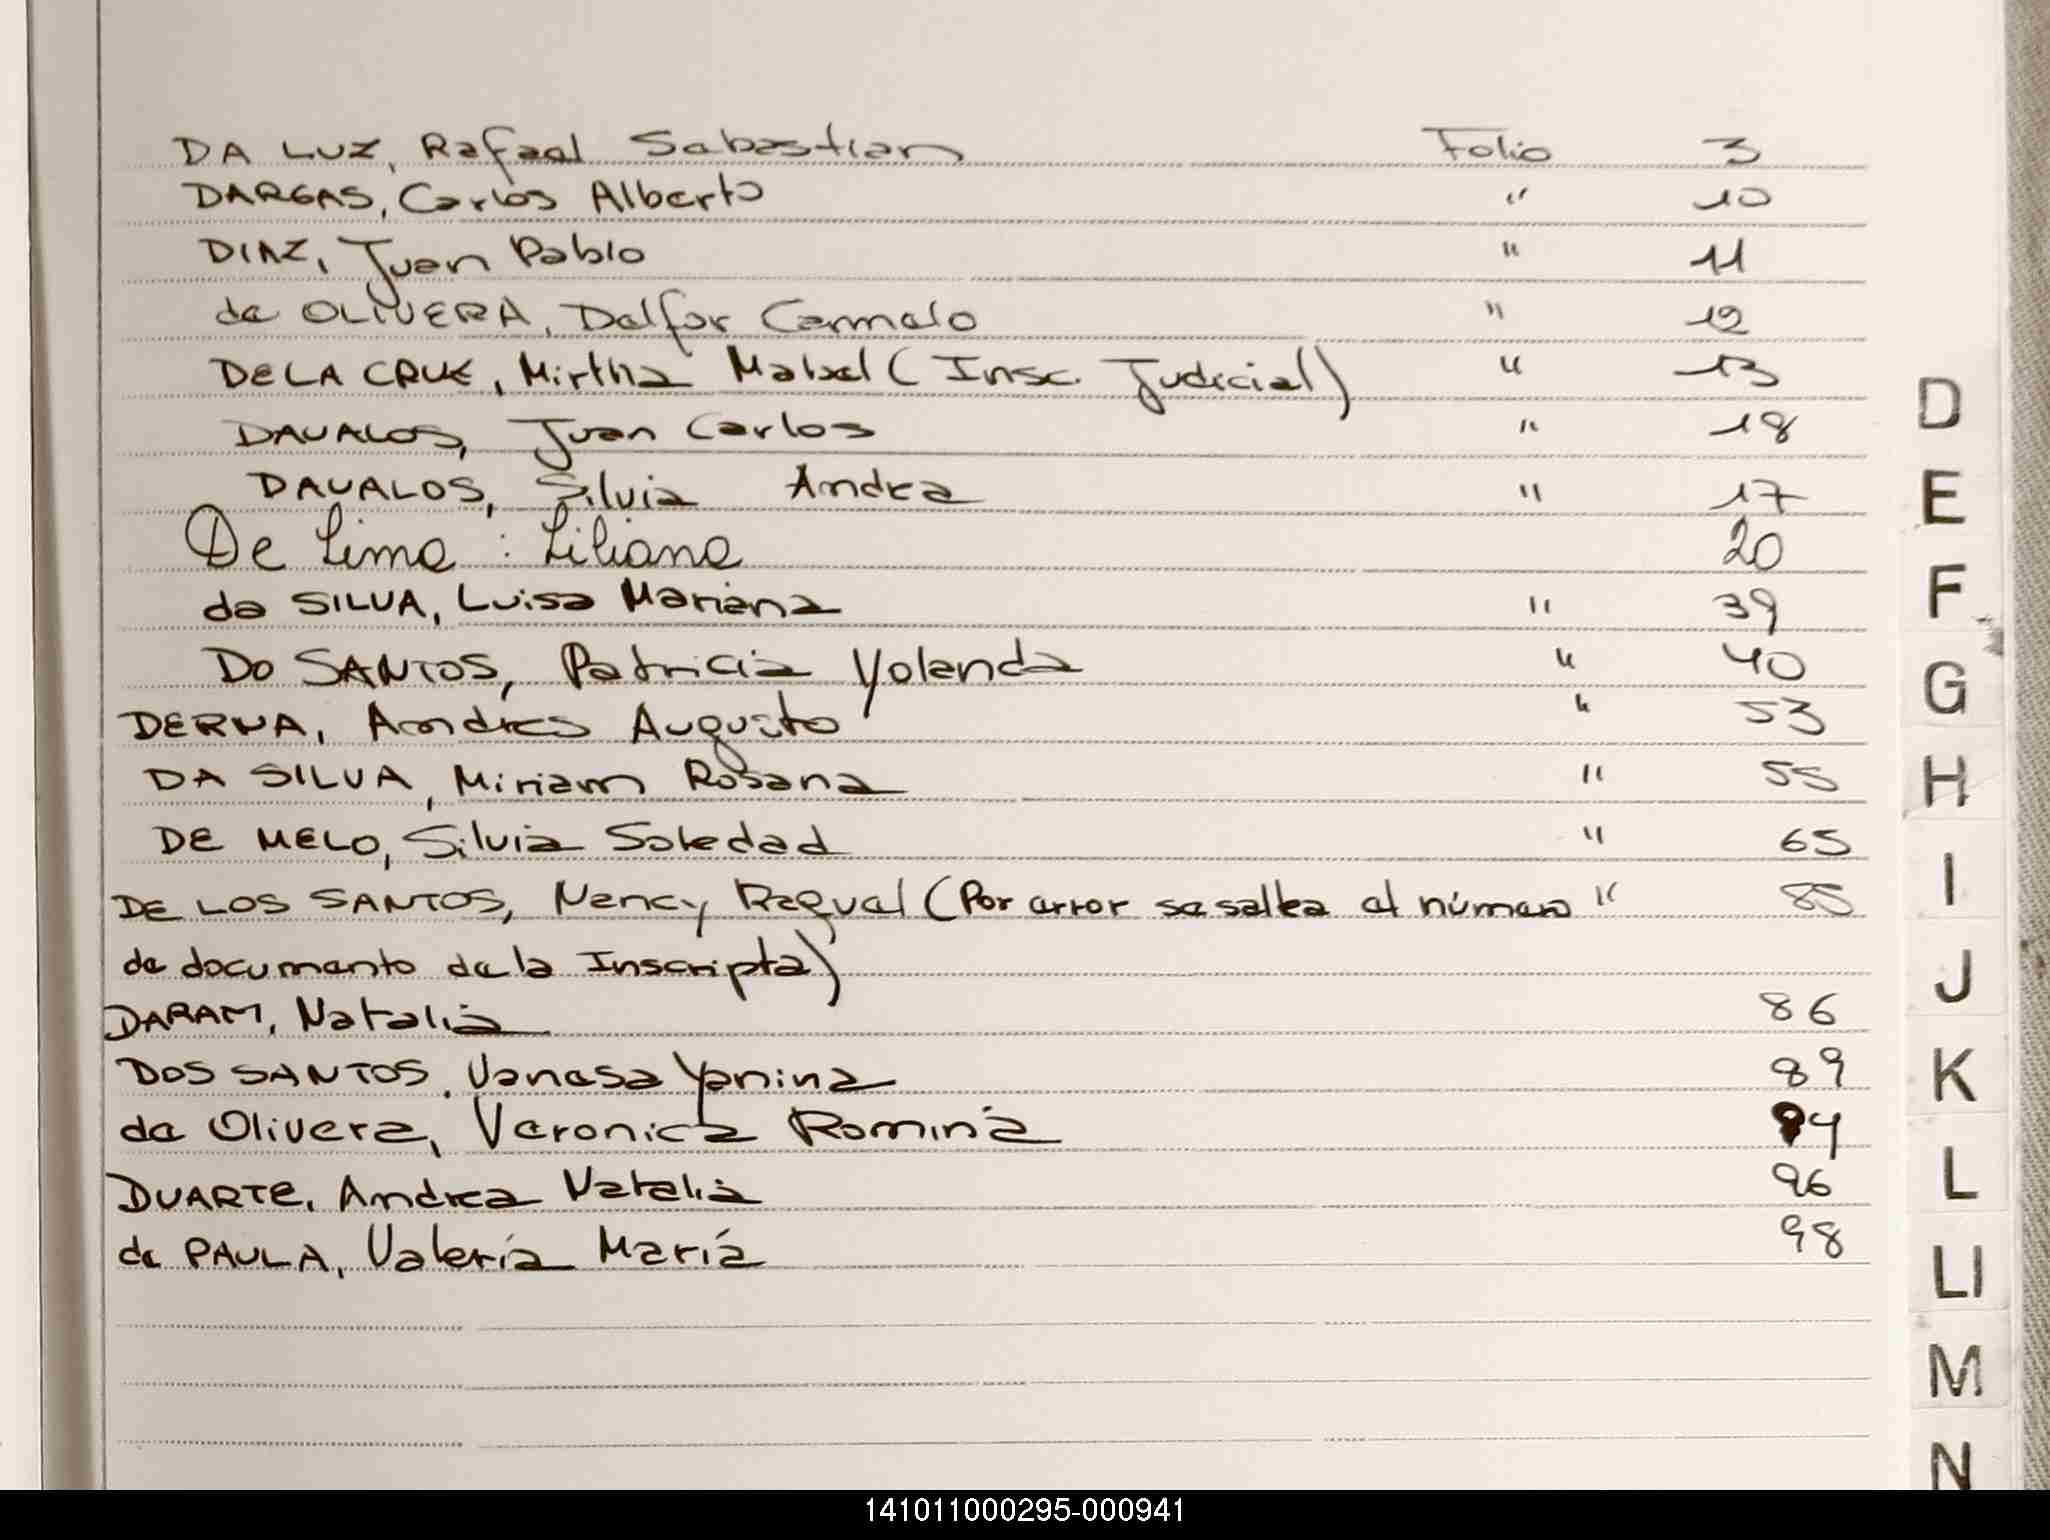 DA LUZ, Rafael Sebastian Folio 3
DARGAS, Carlos Alberto " 10
DIAZ, Juan Pablo " 11
de OLIVERA, Delfor Carmelo " 12
DE LA CRUZ, Mirtha Mabel (Insc. Judicial) " 13
DAVALOS, Juan Carlos " 18
DAVALOS, Silvia Andrea " 17
De Lima : Liliana 20
da SILVA, Luisa Mariana " 39
DO SANTOS, Patricia Yolanda " 40
Andres Augusto " 53
DA SILVA, Miriam Rosana " 55
DE MELO, Silvia Soledad " 65
DE LOS SANTOS, Nancy Raquel (Por error se saltea el número " 85
de documento de la Inscripta)
DARAM, Natalia 86
DOS SANTOS, Vanesa Yanina 89
de Olivera, Veronica Romina 94
DUARTE, Andrea Natalia 96
de PAULA, Valería María 98
D
E
F
G
H
I
J
K
L
Ll
M
N
141011000295-000941